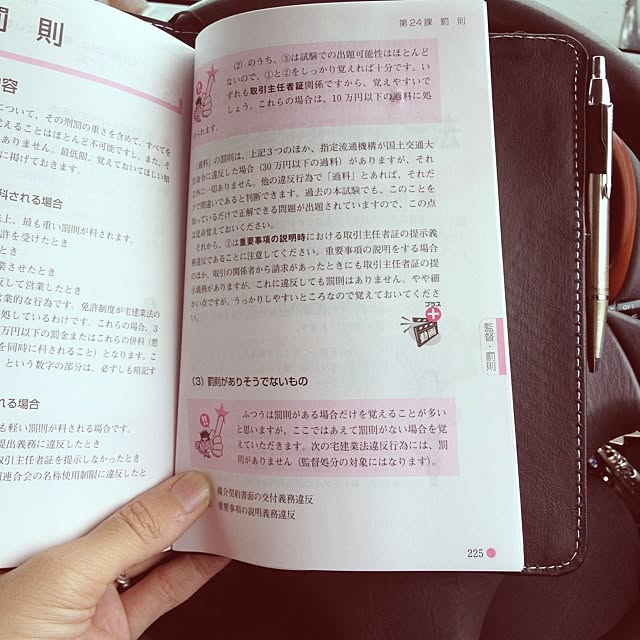 罰 則
内容
について、その刑罰の重さを含めて、すべてを
覚えることはほとんど不可能ですし、また、そ
ありません。最低限、覚えておいてほしい順
に掲げておきます。
科される場合
上、最も重い罰則が科されます。
許を受けたとき
とき
業させたとき
反して営業したとき
業的な行為です。免許制度が宅建業法の
処しているわけです。これらの場合、3
万円以下の罰金またはこれらの併科(懲
を同時に科されること)となります。こ
という数字の部分は、必ずしも暗記す
れる場合
も軽い罰則が科される場合です。
提出義務に違反したとき
取引主任者証を提示しなかったとき
連合会の名称使用制限に違反したと
第24課 罰 則
(2) のうち、③は試験での出題可能性はほとんど
ないので、①と②をしっかり覚えれば十分です。い
ずれも取引主任者証関係ですから、覚えやすいで
しょう。これらの場合は、10万円以下の過料に処
せられます。
「過料」の罰則は、上記3つのほか、指定流通機構が国土交通大
臣命令に違反した場合(30万円以下の過料)がありますが、それ
以外に一切ありません。他の違反行為で「過料」とあれば、それだ
けで間違いであると判断できます。過去の本試験でも、このことを
知っているだけで正解できる問題が出題されていますので、この点
は是非覚えておいてください。
それから、②は重要事項の説明時における取引主任者証の提示義
務違反であることに注意してください。重要事項の説明をする場合
のほか、取引の関係者から請求があったときにも取引主任者証の提
示義務がありますが、これに違反しても罰則はありません。やや細
かい点ですが、うっかりしやすいところなので覚えておいてくださ
い。
プラス
監督・罰則
(3) 罰則がありそうでないもの
ふつうは罰則がある場合だけを覚えることが多い
と思いますが、ここではあえて罰則がない場合を覚
えていただきます。次の宅建業法違反行為には、罰
則がありません(監督処分の対象にはなります)。
媒介契約書面の交付義務違反
重要事項の説明義務違反
225